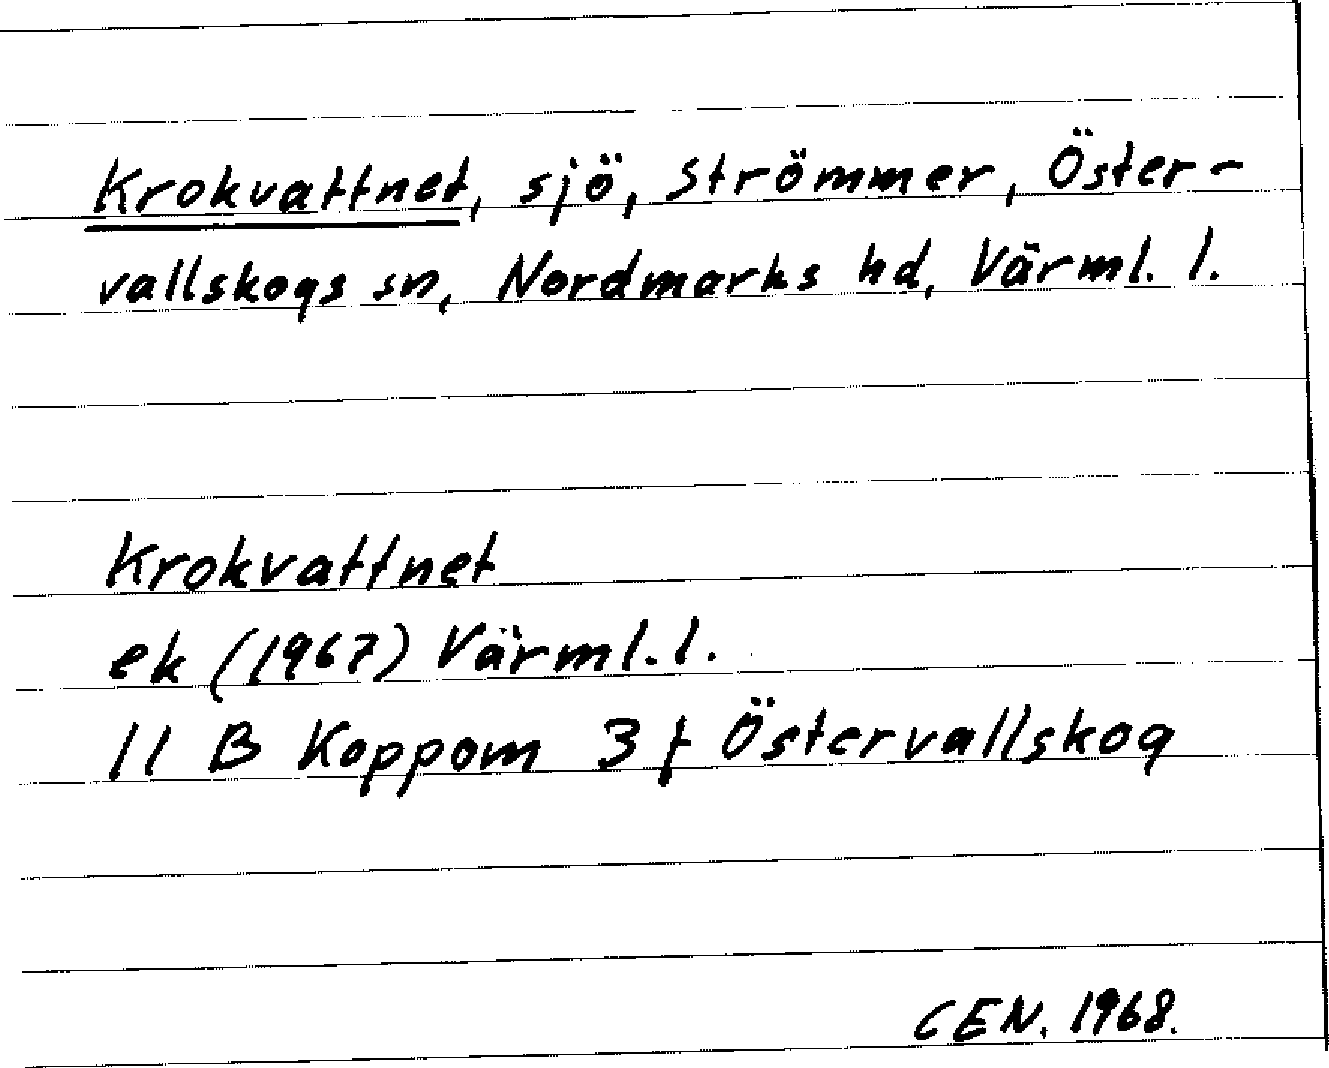 Krokvattnet, sjö, Strömmer, Öster-
vallskogs sn, Nordmarks hd, Värml. l.
Krokvattnet
ek (1967) Värml. l.
11 B Koppom 3 f Östervallskog
CEN. 1968.